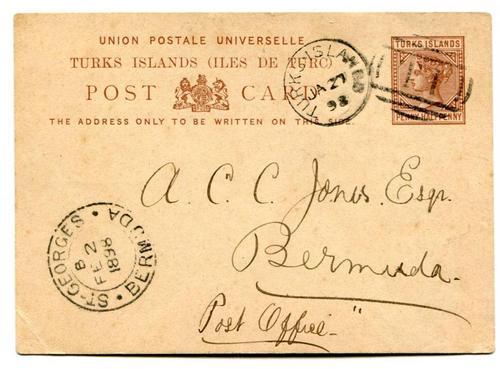 UNION POSTALE UNIVERSELLE
TURKS ISLANDS (ILES DE TURC)
POST CARD
THE ADDRESS ONLY TO BE WRITTEN ON THIS SIDE.
TURKS ISLANDS
PENNY HALFPENNY
TURKS ISLANDS
JA 27
98
A. C. C. Jones. Esqr.
Bermuda.
Post Office
ST. GEORGES • BERMUDA •
B
FE 2
1898